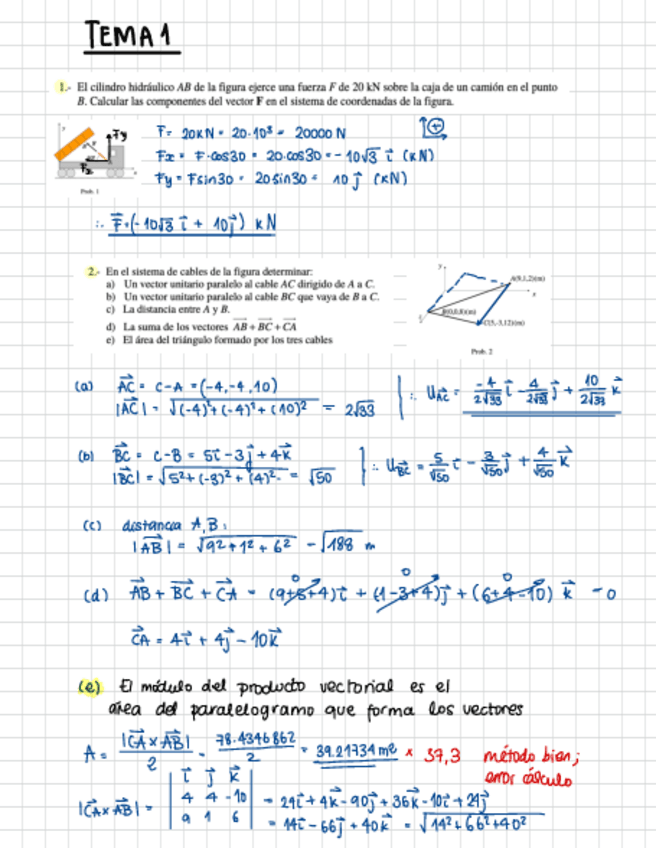 TEMA 1
1.- El cilindro hidráulico AB de la figura ejerce una fuerza F de 20 kN sobre la caja de un camión en el punto
B. Calcular las componentes del vector F en el sistema de coordenadas de la figura.
Fy
Fx
Prob. 1
F = 20KN = 20·10³ = 20000 N
Fx = F·cos30 = 20·cos30 = -10√3 i (KN)
Fy = Fsin30 = 20sin30 = 10 j (KN)
∴ F=(-10√3 i + 10j) kN
2.- En el sistema de cables de la figura determinar:
a) Un vector unitario paralelo al cable AC dirigido de A a C.
b) Un vector unitario paralelo al cable BC que vaya de B a C.
c) La distancia entre A y B.
d) La suma de los vectores AB + BC + CA
e) El área del triángulo formado por los tres cables
Prob. 2
(a) AC = C-A = (-4,-4,10)
|AC| = √(-4)²+(-4)²+(10)² = 2√33
∴ UAC = -4/2√33 i - 4/2√33 j + 10/2√33 k
(b) BC = C-B = 5i - 3j + 4k
|BC| = √5²+(-3)²+(4)² = √50
∴ UBC = 5/√50 i - 3/√50 j + 4/√50 k
(c) distancia A,B:
|AB| = √9²+1²+6² = √188 m
(d) AB + BC + CA = (9+5+4)i + (1-3+4)j + (6+4-10) k = 0
0 0 0
CA = 4i + 4j - 10k
(e) El módulo del producto vectorial es el
área del paralelogramo que forma los vectores
A = |CA x AB| / 2 = 78.4346862 / 2 = 39.21734 m² × 37,3 método bien;
error cálculo
|CA x AB| = i j k
4 4 -10
9 1 6
= 24i + 4k - 90j + 36k - 10i + 24j
= 14i - 66j + 40k = √14² + 66² + 40²